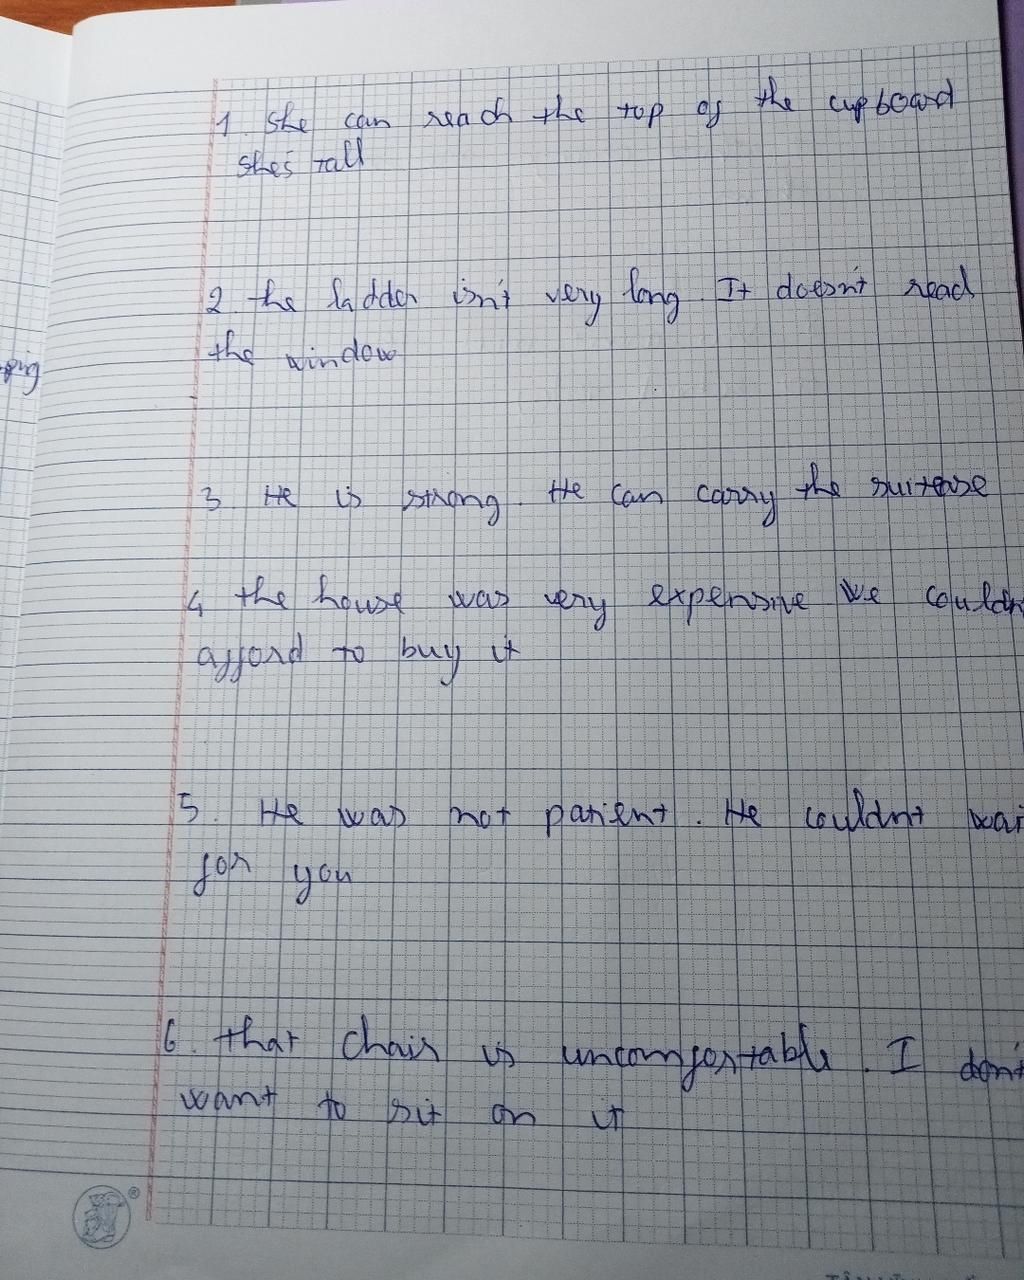 1. She can reach the top of the cupboard
She's tall
2. the ladder isn't very long It doesn't read
the window
ping
3 He is strong. He can carry the suitcase
4 the house was very expensive We couldn
afford to buy it
5. He was not patient. He couldn't wai
for you
6. that chair is uncomfortable. I don't
want to sit on it
®